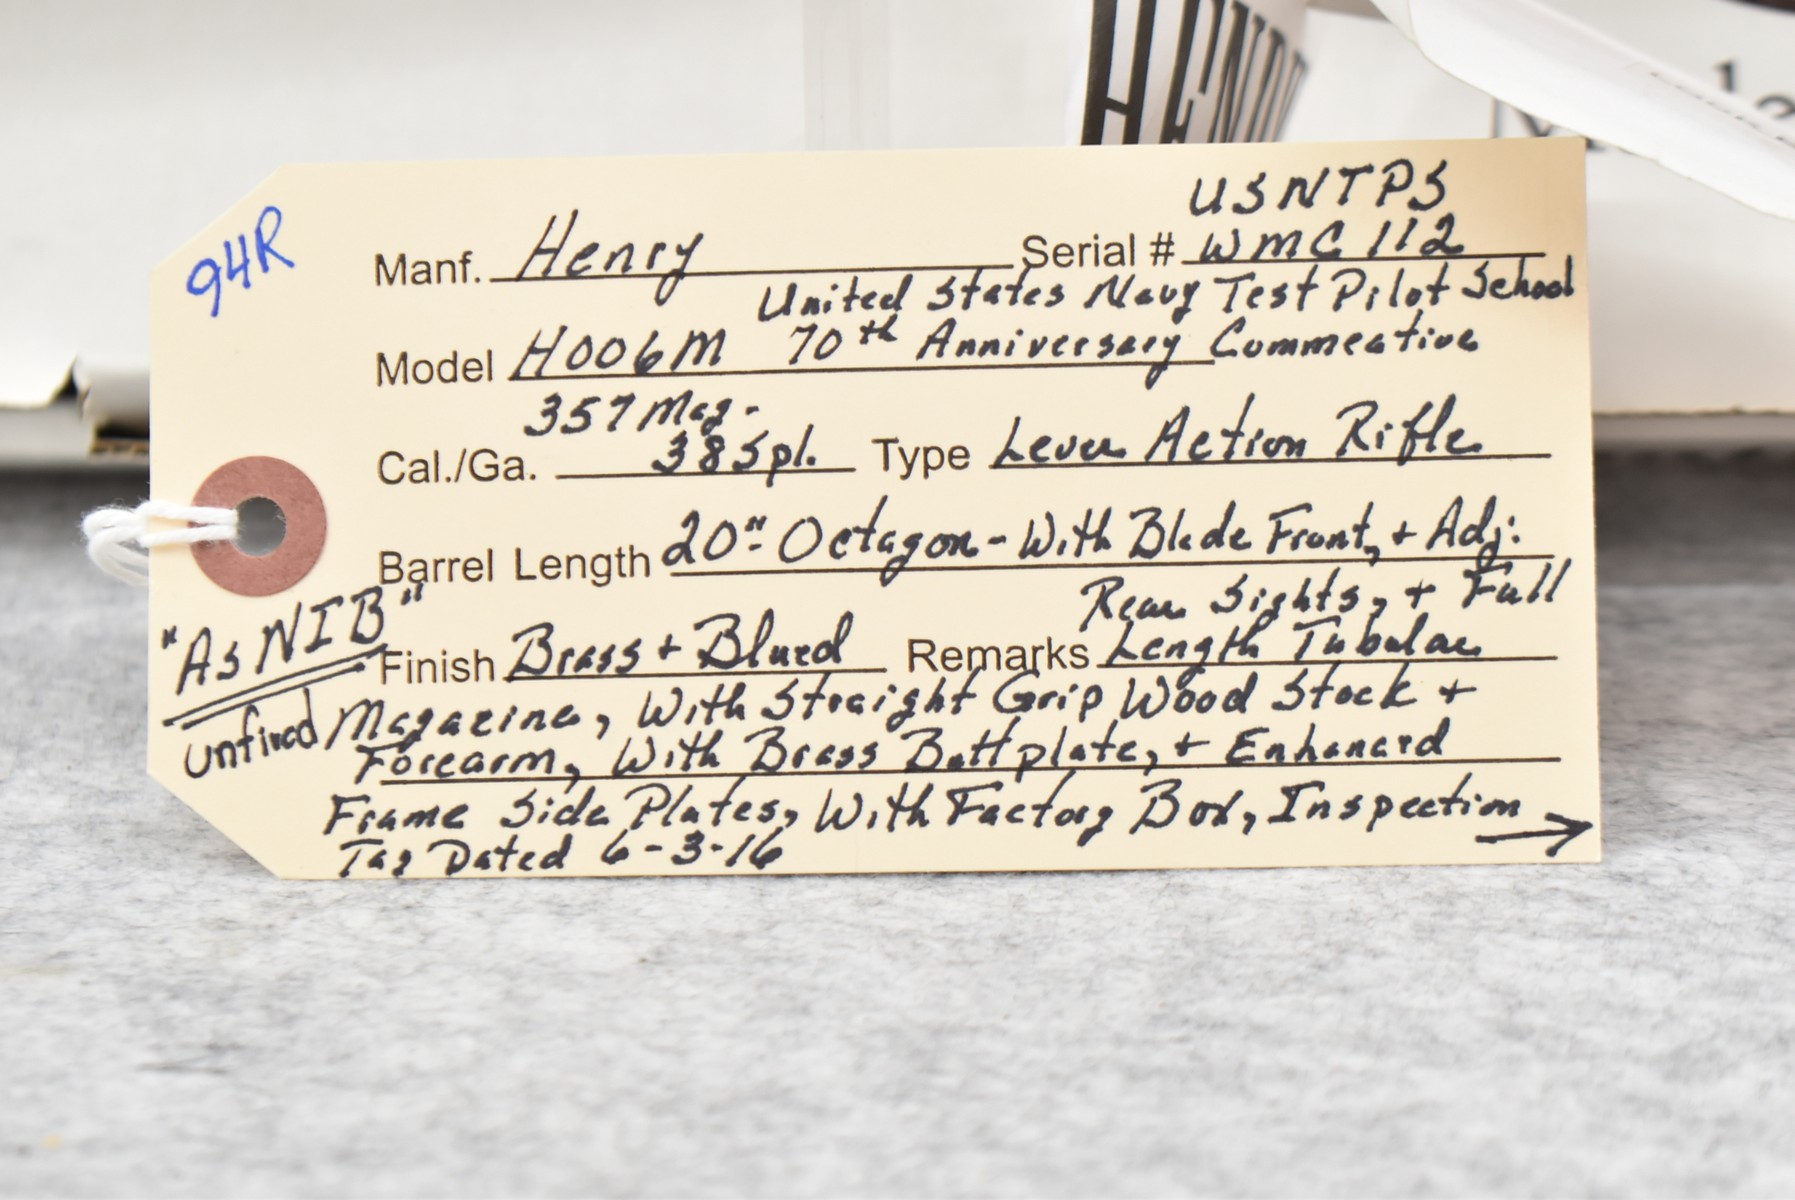 HENRY
94R
USNTPS
Manf. Henry Serial # WMC 112
United States Navy Test Pilot School
Model H006M 70th Anniversary Commeative
357 Mag.
Cal./Ga. 38 Spl. Type Lever Action Rifle
Barrel Length 20" Octagon - With Blade Front, + Adj.
Rear Sights, + Full
"As NIB" Finish Brass + Blued Remarks Length Tubular
unfired Magazine, With Straight Grip Wood Stock +
Forearm, With Brass Buttplate, + Enhanced
Frame Side Plates, With Factory Box, Inspection
Tag Dated 6-3-16